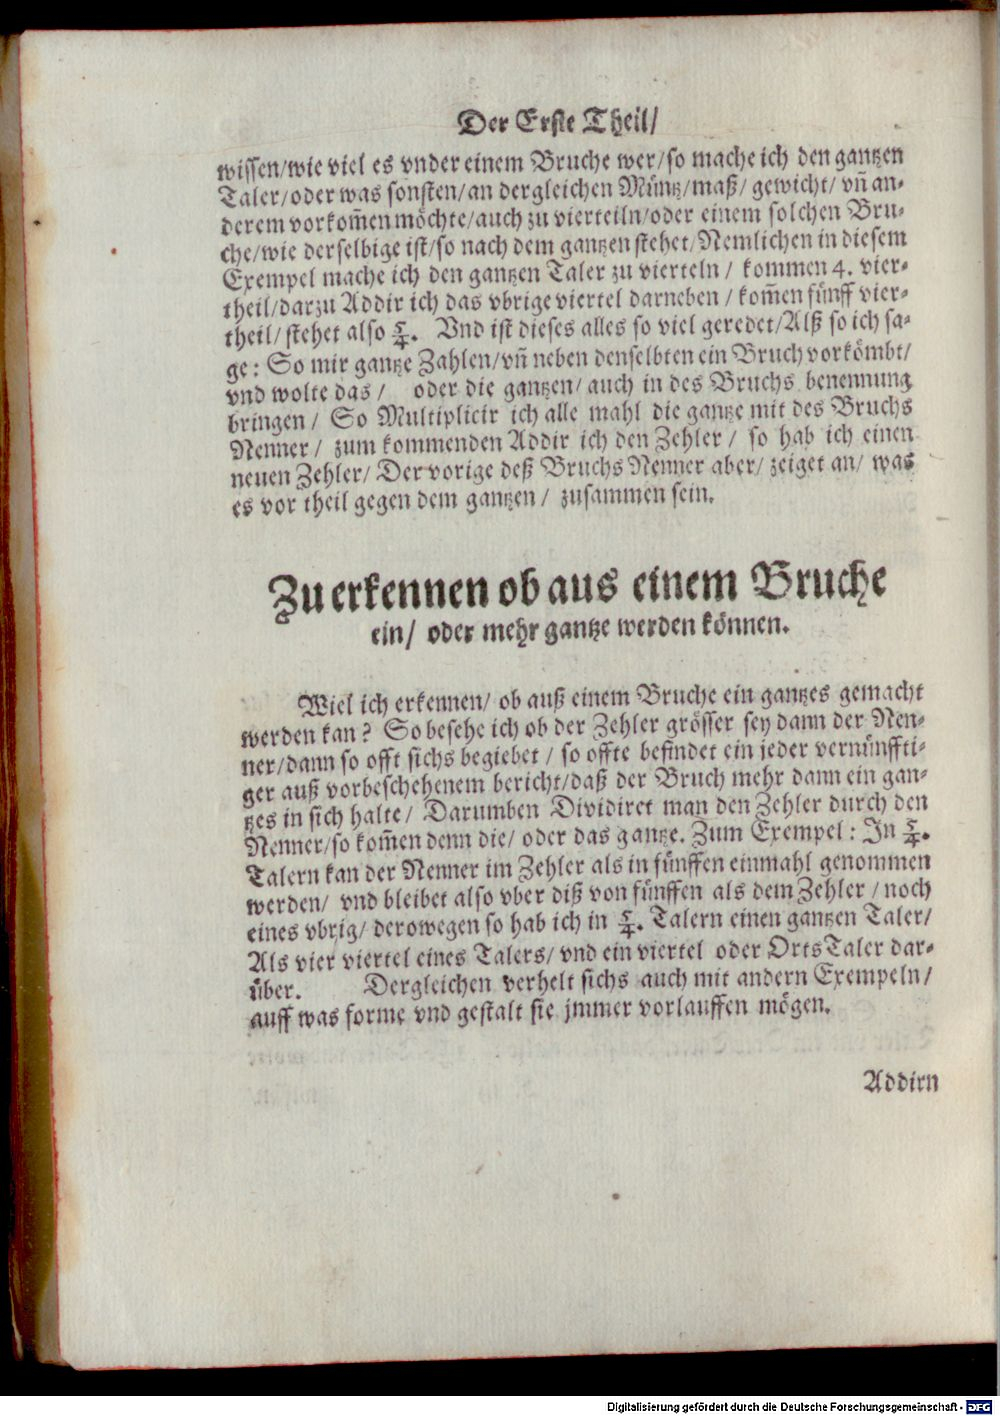 Der Erste Theil/
wissen/wie viel es vnder einem Bruche wer/so mache ich den gantzen
Taler/oder was sonsten/an dergleichen Müntz/maß/gewicht/vñ an-
derem vorkom̃en möchte/auch zu vierteiln/oder einem solchen Bru-
che/wie derselbige ist/so nach dem gantzen stehet/Nemlichen in diesem
Exempel mache ich den gantzen Taler zu vierteln/ kommen 4. vier-
theil/darzu Addir ich das vbrige viertel darneben/ kom̃en fünff vier-
theil/stehet also 5/4. Vnd ist dieses alles so viel geredet/Alß so ich sa-
ge: So mir gantze Zahlen/vñ neben denselbten ein Bruch vorkömbt/
vnd wolte das/ oder die gantzen/ auch in des Bruchs benennung
bringen/ So Multiplicir ich alle mahl die gantze mit des Bruchs
Nenner/ zum kommenden Addir ich den Zehler/ so hab ich einen
neuen Zehler/ Der vorige deß Bruchs Nenner aber/ zeiget an/ was
es vor theil gegen dem gantzen/ zusammen sein.
Zu erkennen ob aus einem Bruche
ein/ oder mehr gantze werden können.
Wiel ich erkennen/ ob auß einem Bruche ein gantzes gemacht
werden kan? So besehe ich ob der Zehler grösser sey dann der Nen-
ner/dann so offt sichs begiebet/ so offte befindet ein jeder vernünffti-
ger auß vorbeschehenem bericht/daß der Bruch mehr dann ein gan-
tzes in sich halte/ Darumben Dividiret man den Zehler durch den
Nenner/so kom̃en denn die/ oder das gantze. Zum Exempel: In 5/4.
Talern kan der Nenner im Zehler als in fünffen einmahl genommen
werden/ vnd bleibet also vber diß von fünffen als dem Zehler/ noch
eines vbrig/ derowegen so hab ich in 5/4. Talern einen gantzen Taler/
Als vier viertel eines Talers/ vnd ein viertel oder Orts Taler dar-
über. Dergleichen verhelt sichs auch mit andern Exempeln/
auff was forme vnd gestalt sie jmmer vorlauffen mögen.
Addirn
Digitalisierung gefördert durch die Deutsche Forschungsgemeinschaft - DFG